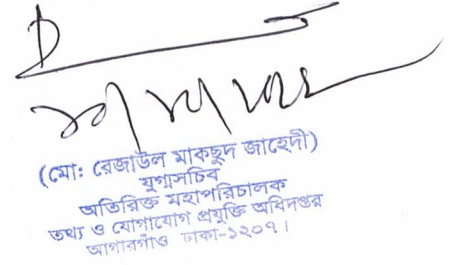 (মো: রেজাউল মাকছুদ জাহেদী)
যুগ্মসচিব
অতিরিক্ত মহাপরিচালক
তথ্য ও যোগাযোগ প্রযুক্তি অধিদপ্তর
আগারগাঁও ঢাকা-১২০৭।